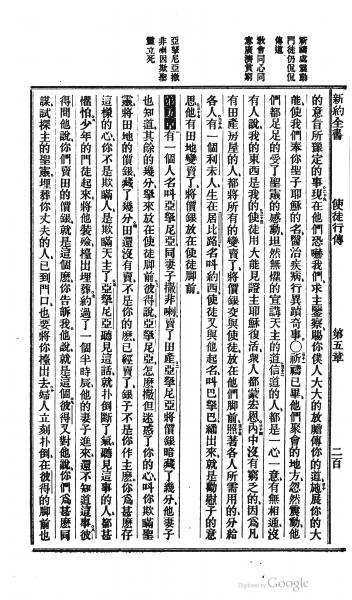 新約全書
使徒行傳
第五章
二百
祈禱處震動
門徒仍侃侃
傳道
敎會同心同
意廣濟貧窮
亞拏尼亞撒
非喇因欺聖
靈立死
的意旨所豫定的事現在他們恐嚇我們求主鑒察賜你僕人大大的放膽傳你的道施展你的大
能使我們奉你聖子耶穌的名醫治疾病行異蹟奇事○祈禱已畢他們聚會的地方忽然震動他
們都足足的受了聖靈的感動坦然無懼的宣講天主的道信道的人都是一心一意有無相通沒
有人說我的東西是我的使徒用大能見證主耶穌復活衆人都蒙宏恩內中沒有窮乏的因爲凡
有田產房屋的人都將所有的變賣了將價銀交與使徒放在他們脚前照著各人所需用的分給
各人有一個利未人生在居比路名叫約西使徒又與他起名叫巴拏巴繙出來就是勸慰子的意
思他有田地變賣了將價銀放在使徒脚前
第五章有一個人名叫亞拏尼亞同妻子撒非喇賣了田產亞拏尼亞將價銀暗藏了幾分他妻子
也知道其餘的幾分拏來放在使徒脚前彼得說亞拏尼亞怎麽撒但迷惑了你的心叫你欺瞞聖
靈將田地的價銀藏了幾分田還沒有賣不是你的麽已經賣了銀子不是你作主麽你爲甚麽存
這樣的心你不是欺瞞人是欺瞞天主了亞拏尼亞聽見這話就扑倒斷了氣聽見這事的人都甚
懼怕少年的門徒起來將他裝殮擡出埋葬約過了一個半時辰他的妻子進來還不知道這事彼
得問他說你們賣田的價銀就是這個麽你告訴我他說就是這個彼得又對他說你們爲甚麽同
謀試探主的聖靈埋葬你丈夫的人已到門口也要將你擡出去婦人立刻扑倒在彼得的脚前也
Digitized by Google